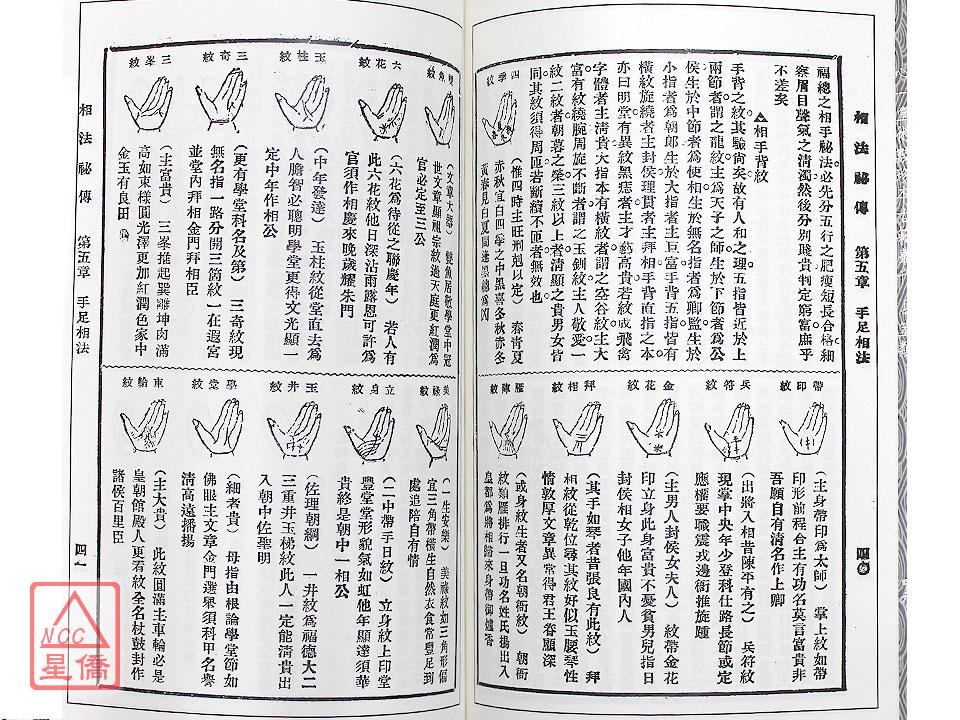 相法祕傳 第五章 手足相法
福總之相手祕法必先分五行之肥瘦短長合格細
察眉目聲氣之清濁然後分別賤貴判定窮富庶乎
不差矣
△相手背紋
手背之紋其驗尚矣故有人和之理五指皆近於上
兩節者謂之龍紋主為天子之師生於下節者為公
侯生於中節者為使相生於無名指者為卿監生於
小指者為朝郎生於大指者主巨富手背五指皆有
橫紋旋繞者主封侯理貫者主拜相手背直指之本
亦曰明堂有異紋黑痣者主才藝高貴若紋成飛禽
字體者主清貴大指本有橫紋者謂之空谷紋主大
富有紋繞腕周旋不斷者謂之玉釧紋主人敬愛一
紋二紋者朝暮之榮三紋以上者清顯之貴男女皆
同其紋須得周匝若斷續不匝者無效也
四季紋
（惟四時主旺刑剋以定） 春青夏
赤秋宜白四季之中黑喜冬秋赤冬
帶印紋
（主身帶印為太師） 掌上紋如帶
印形前程合主有功名莫言富貴非
吾願自有清名作上卿
兵符紋
（出將入相昔陳平有之） 兵符紋
現掌中央年少登科仕路長節或定
應權要職震戎邊衛推旋踵
金花紋
（主男人封侯女夫人） 紋帶金花
印立身此身富貴不憂貧男兒指日
封侯相女子他年國內人
拜相紋
（其手如琴者昔張良有此紋） 拜
相紋從乾位尋其紋好似玉腰琴性
情敦厚文章異常得君王眷顧深
雁陣紋
（或身紋生者又名朝衙紋） 朝衙
紋類雁排行一旦功名姓氏揚出入
皇都為將相歸來身帶御爐香
雙魚紋
（文章大髒） 雙魚居數學堂中冠
世文章顯祖宗紋過天庭更紅潤為
官必定至三公
六花紋
（六花為侍從之聯慶年） 若人有
此六花紋他日深沾雨露恩可許為
官須作相慶來晚歲耀朱門
玉柱紋
（中年發達） 玉柱紋從堂直去為
人膽智必聰明學堂更得文光顯一
定中年作相公
三奇紋
（更有學堂科名及第） 三奇紋現
無名指一路分開三箇紋一在遐宮
並堂內拜相金門拜相臣
三峯紋
（主富貴） 三峯推起巽離坤肉滿
高如束樣圓光澤更加紅潤色家中
金玉有良田
美祿紋
（一生安樂） 美祿紋如三角形偏
宜三角帶橫生自然衣食常豐足到
處追陪自有情
立身紋
（二中帶手日紋） 立身紋上印堂
豐堂堂形貌氣如虹他年顯達須華
貴終是朝中一相公
玉井紋
（佐理朝綱） 一井紋為福德大二
三重井玉梯紋此人一定能清貴出
入朝中佐聖明
學堂紋
（細者貴） 母指由根論學堂節如
佛眼主文章金門選舉須科甲名譽
清高遠播揚
車輪紋
（主大貴） 此紋圓滿主車輪必是
皇朝館殿人更看紋全名杖鼓封作
諸侯百里臣
相法祕傳 第五章 手足相法
四一
NCC
星僑